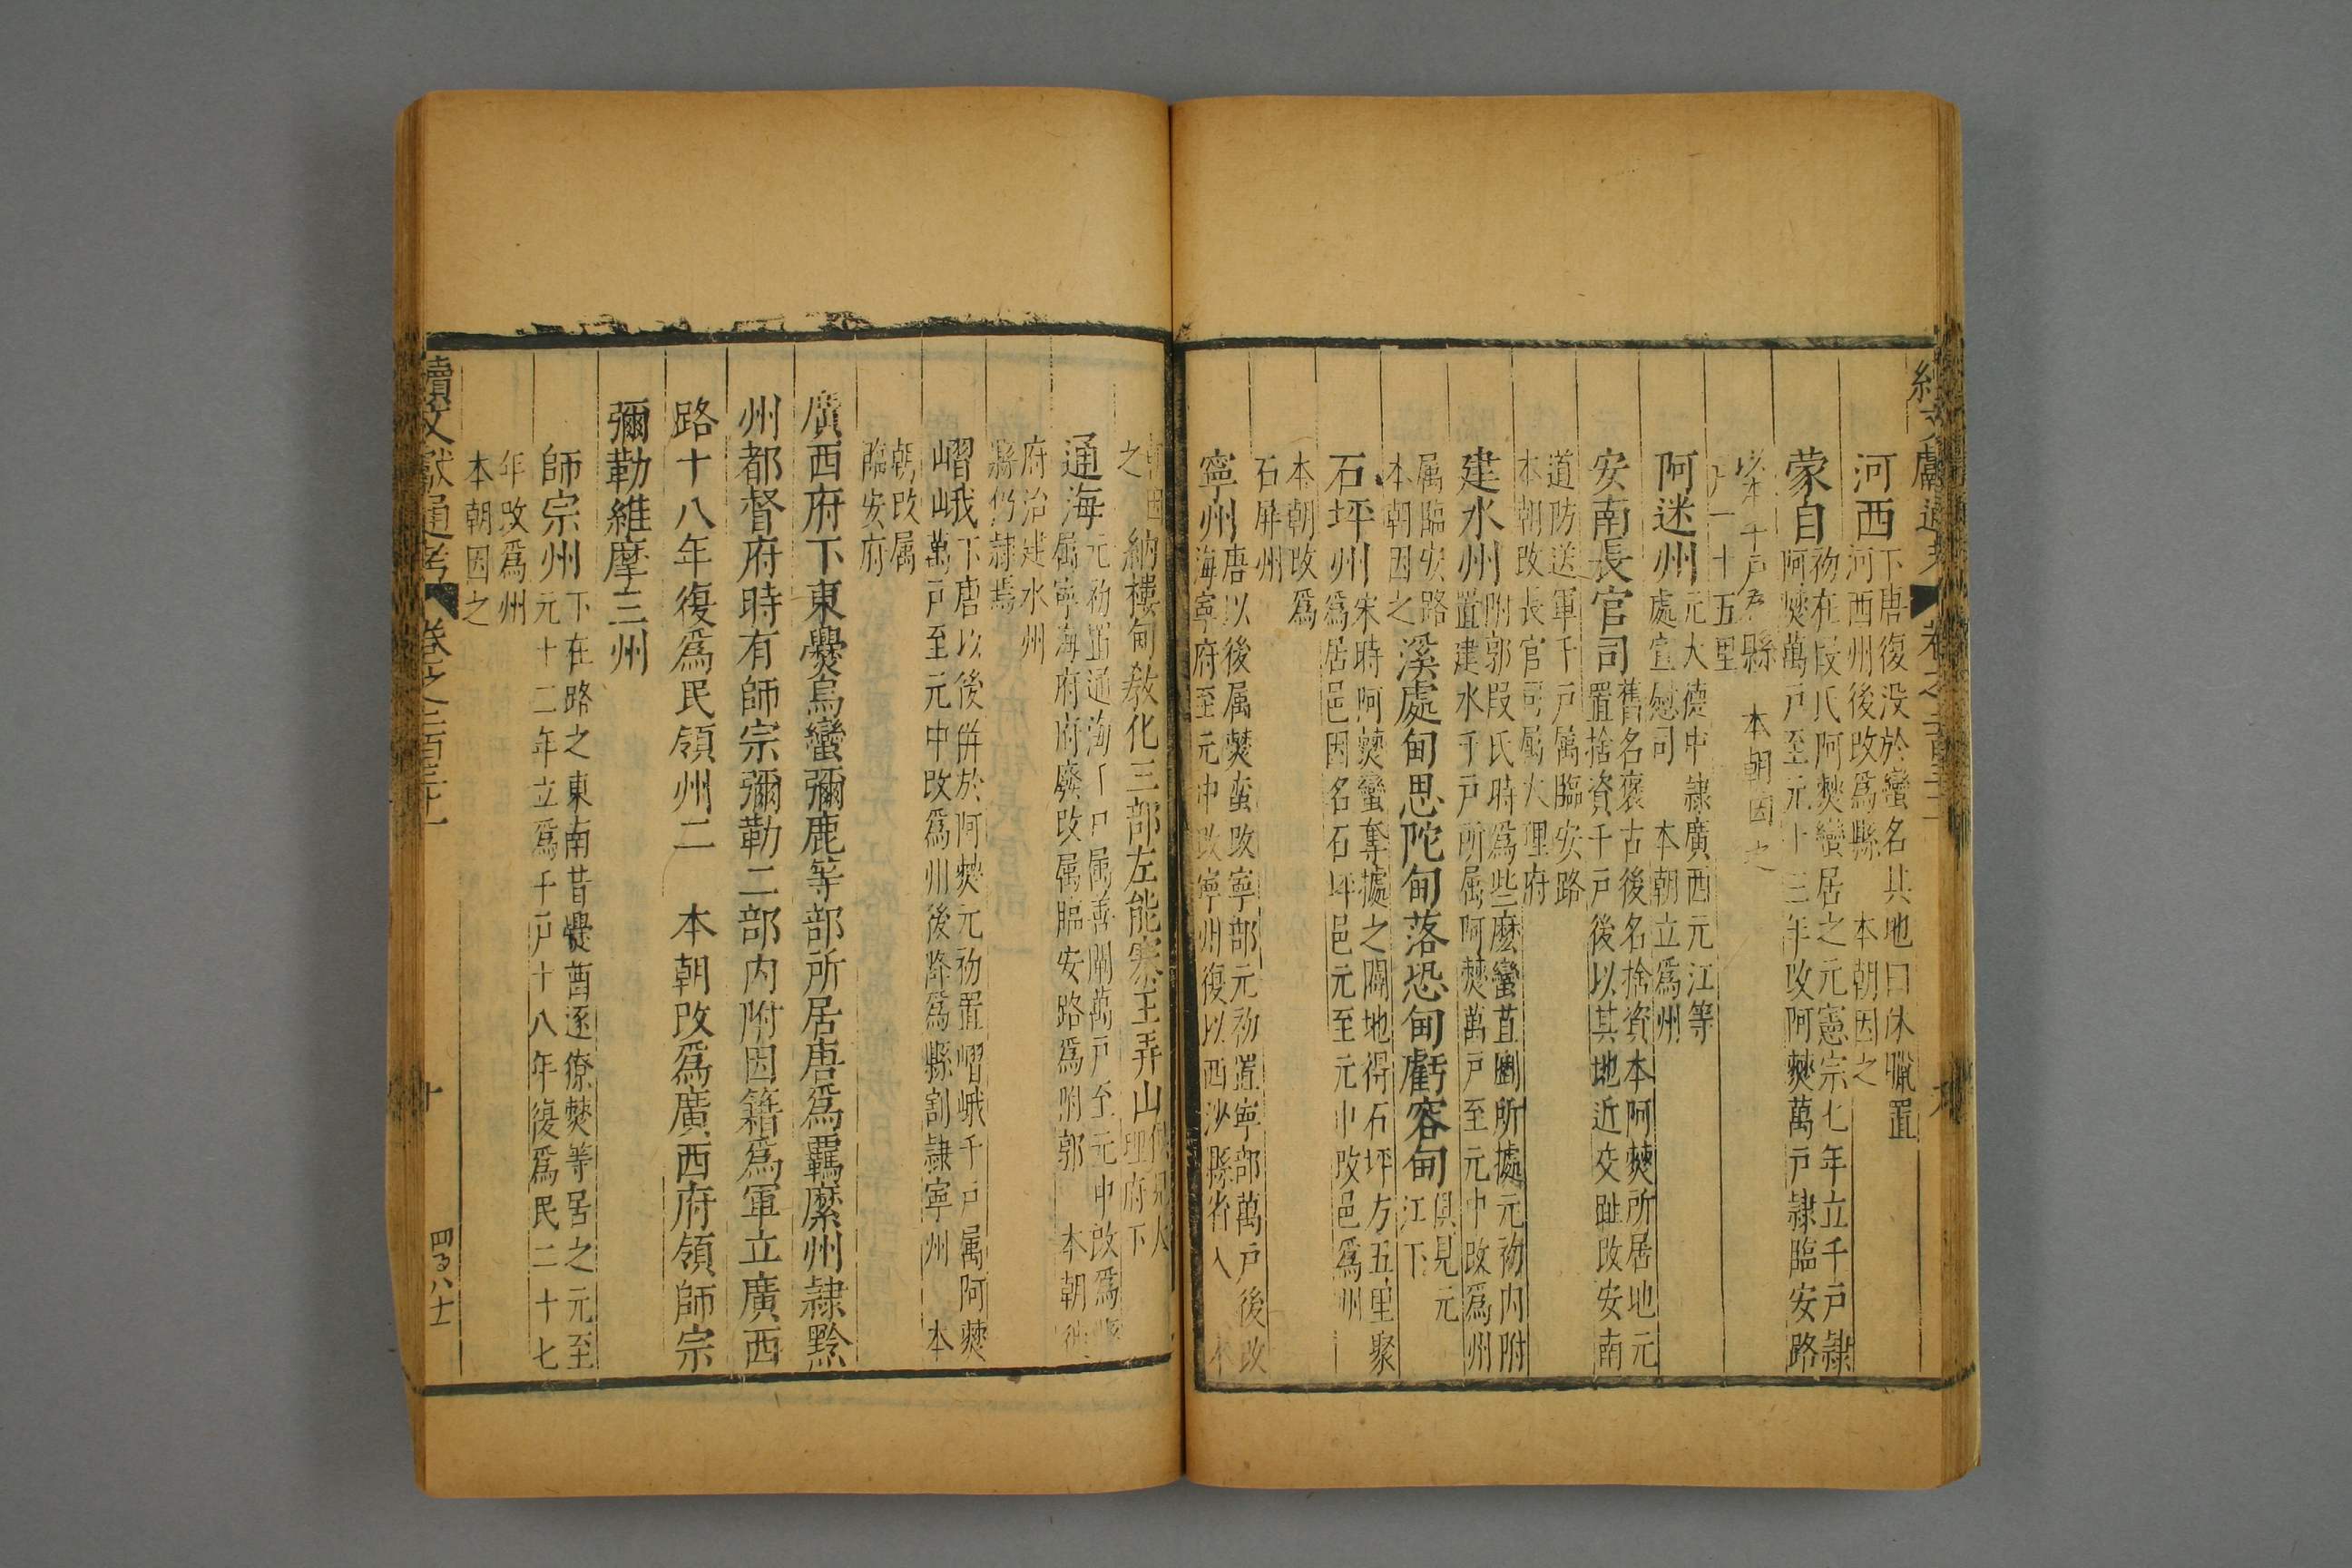 河西下唐復没於蠻名其地曰休臘置
河西州後改爲縣　本朝因之
蒙自初在段氏阿僰蠻居之元憲宗七年立千戸隷
阿僰萬戸至元十三年改阿僰萬戸隷臨安路
縣　本朝因之
一十五里
阿迷州元大德中隷廣西元江等
處宣慰司　本朝立爲州
安南長官司舊名褒古後名捨資本阿僰所居地元
置捨資千戸後以其地近交趾改安南
道防送軍千戸属臨安路
本朝改長官司属大理府
建水州附郭段氏時爲些麽蠻苴劚所據元初内附
置建水千戸所属阿僰萬戸至元中改爲州
属臨安路
本朝因之
溪處甸思陀甸落恐甸虧容甸俱見元
江下
石坪州宋時阿僰蠻奪據之闢地得石坪方五里聚
爲居邑因名石坪邑元至元中改邑爲州
本朝改爲
石屏州
寧州唐以後属僰蛮改寧部元初置寧部萬戸後改
海寧府至元中改寧州復以西沙縣省入　本
之
納樓甸教化三部左能寨王弄山
理府下
通海元初置通海千戸属善闡萬戸至元中改爲縣
属寧海府府廢改属臨安路爲附郭　本朝徙
府治建水州
縣仍隷焉
嶍峨下唐以後併於阿僰元初置嶍峨千戸属阿僰
萬戸至元中改爲州後降爲縣割隷寧州　本
朝改属
臨安府
廣西府下東爨烏蠻彌鹿等部所居唐爲羈縻州隷黔
州都督府時有師宗彌勒二部内附因籍爲軍立廣西
路十八年復爲民領州二　本朝改爲廣西府領師宗
彌勒維摩三州
師宗州下在路之東南昔爨酋逐獠僰等居之元至
元十二年立爲千戸十八年復爲民二十七
年改爲州
本朝因之
續文獻通考　卷之二百三十一　十